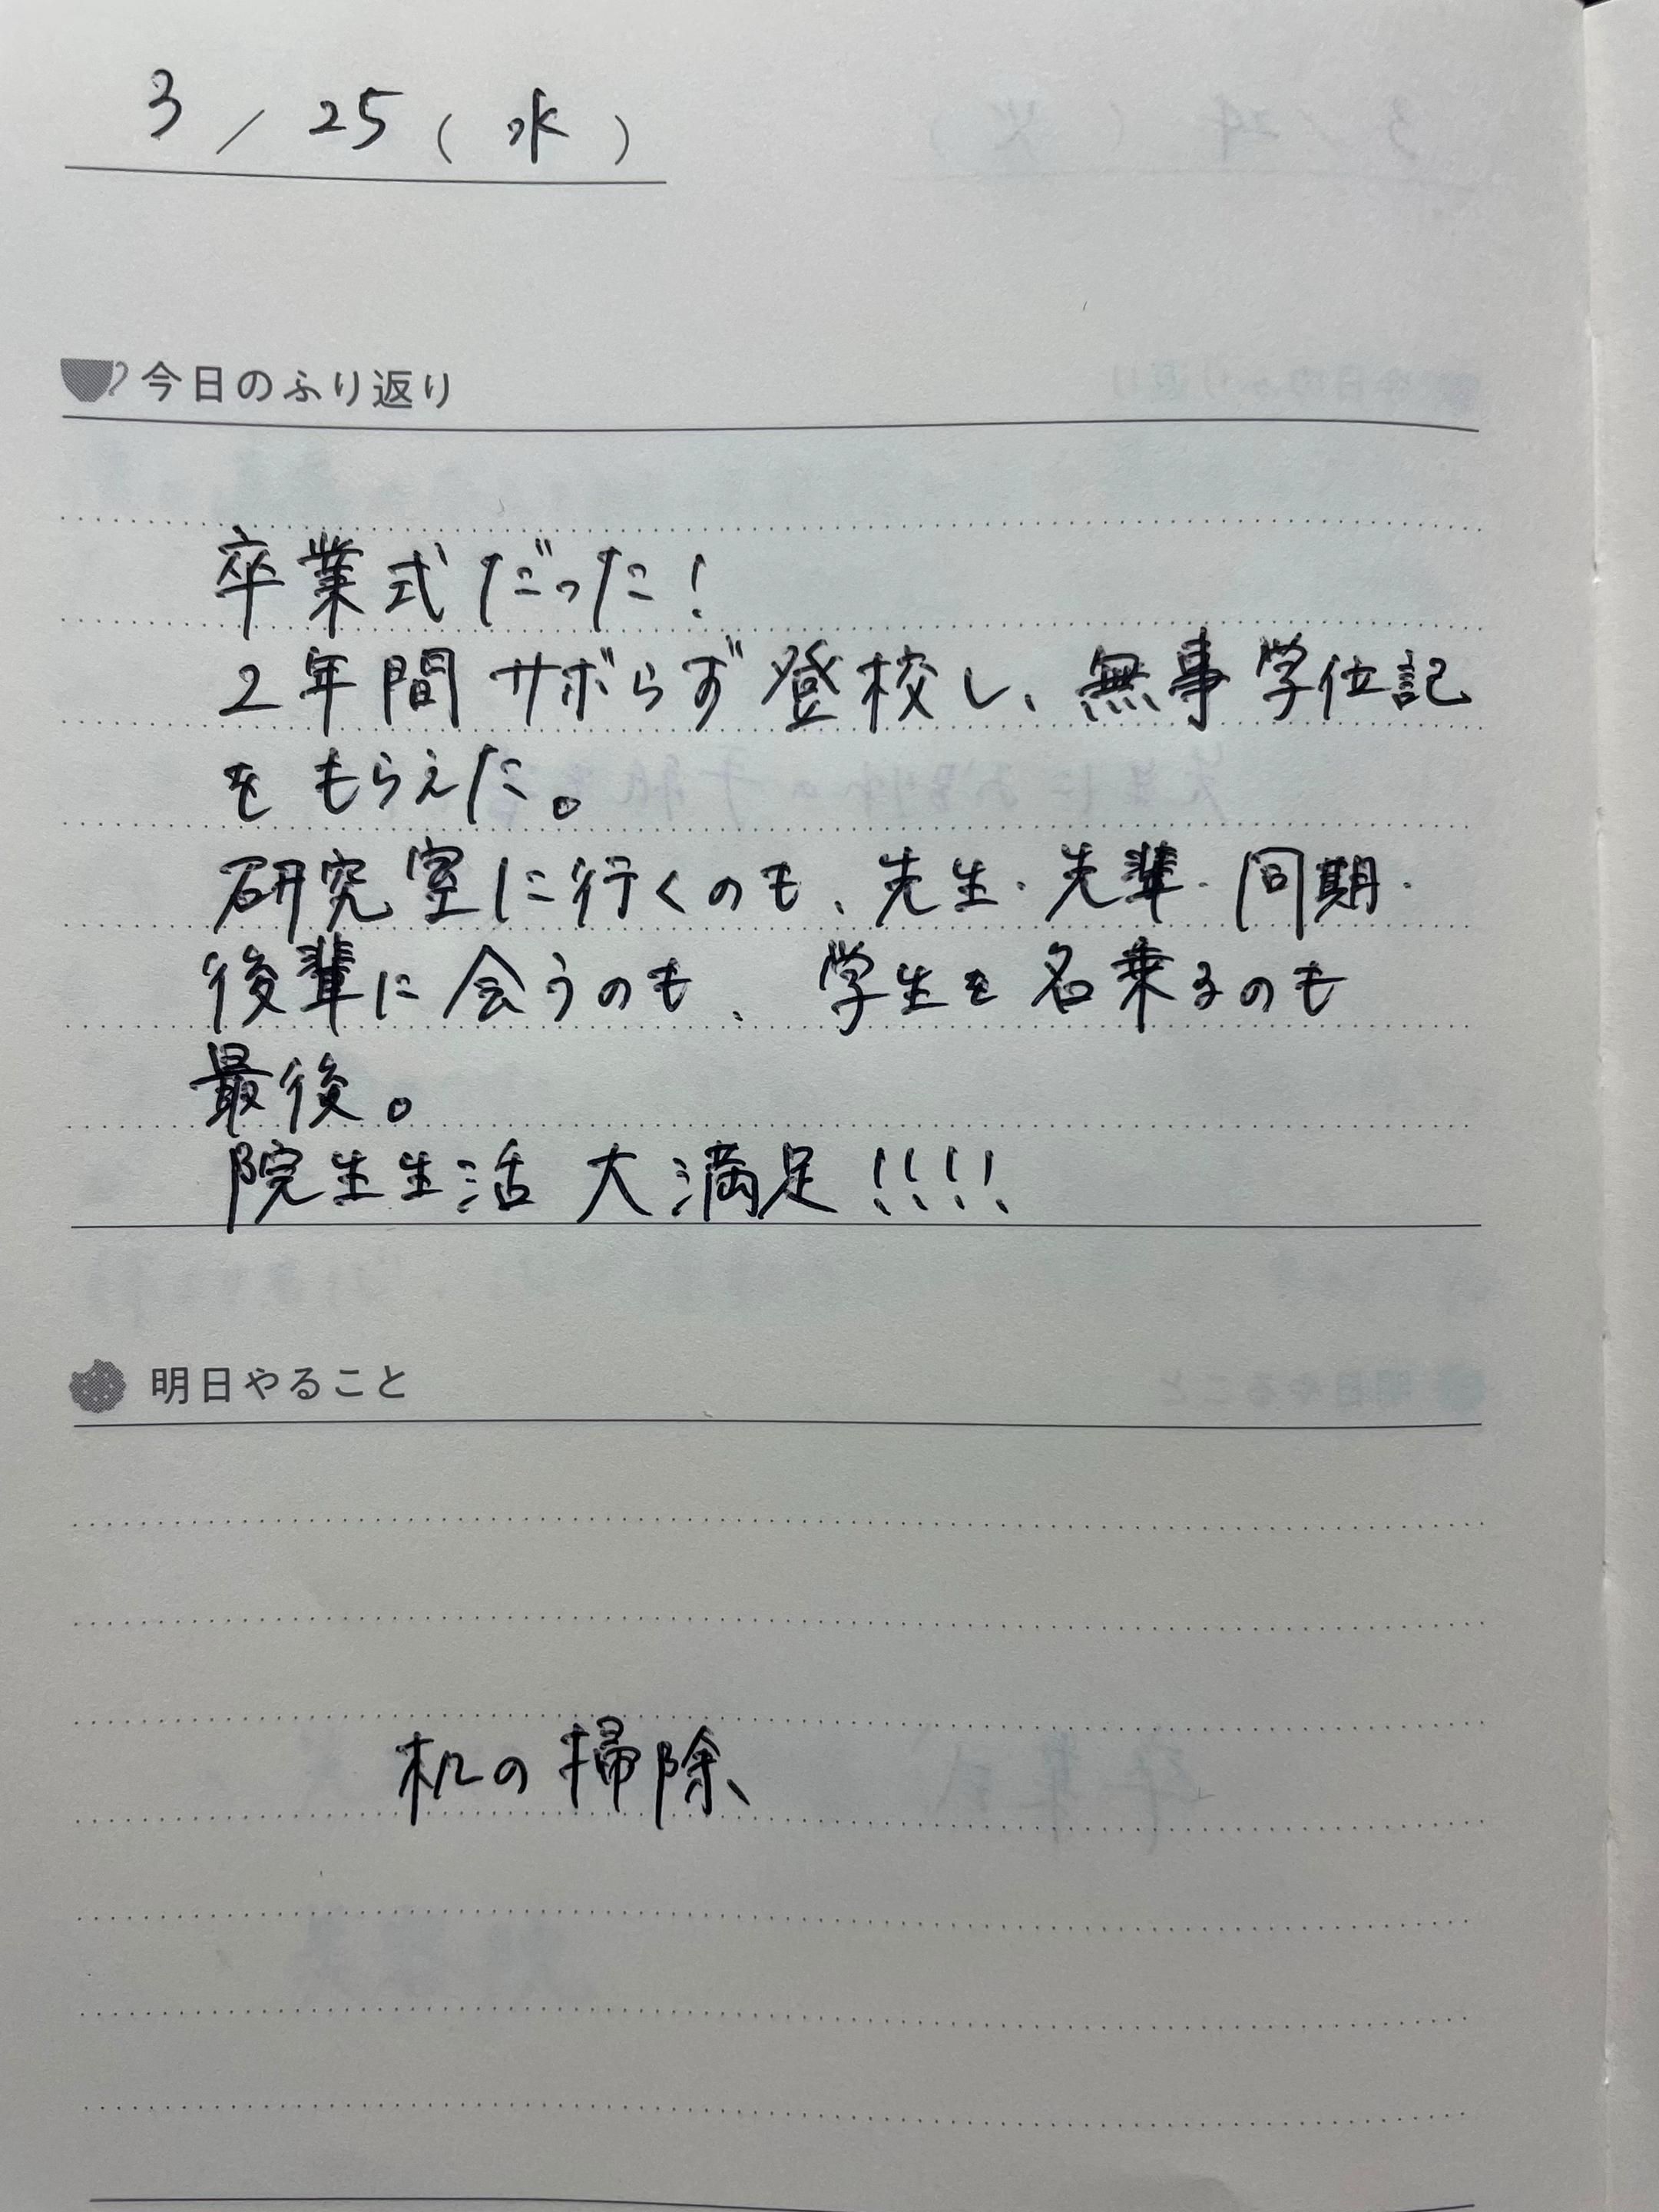 3/25(水)
今日のふり返り
卒業式だった!
2年間サボらず登校し、無事学位記
をもらえた。
研究室に行くのも、先生・先輩・同期・
後輩に会うのも、学生を名乗るのも
最後。
院生生活大満足!!!!
明日やること
机の掃除、